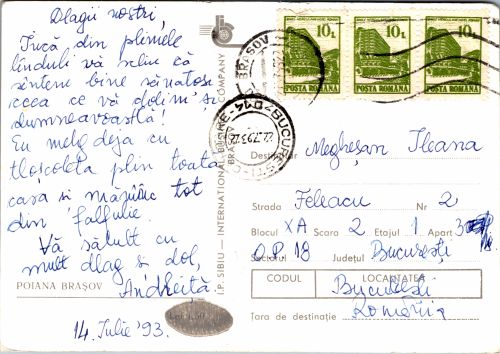 Dragii noștri,
Încă din primele
rînduri vă scriu că
sîntem bine sănătoși
ceea ce vă dorim și
dumneavoastră!
Eu merg deja cu
plin toată
casa și mănînc tot
din farfurie.
Vă sărut cu
mult drag și dor,
Andreiță
14. Iulie '93.
POIANA BRAȘOV
Lei 1,50
I.P. SIBIU – INTERNATIONAL
COMPANY
BRAȘOV
BUCUREȘTI
22.7.93
10L 10L 10L
POSTA ROMANA POSTA ROMANA POSTA ROMANA
Destinatar Megheșan Ileana
Strada Feleacu Nr 2
Blocul XA Scara 2 Etajul 1 Apart
O.P. 18
Sectorul Județul București
CODUL LOCALITATEA
București
Tara de destinație România